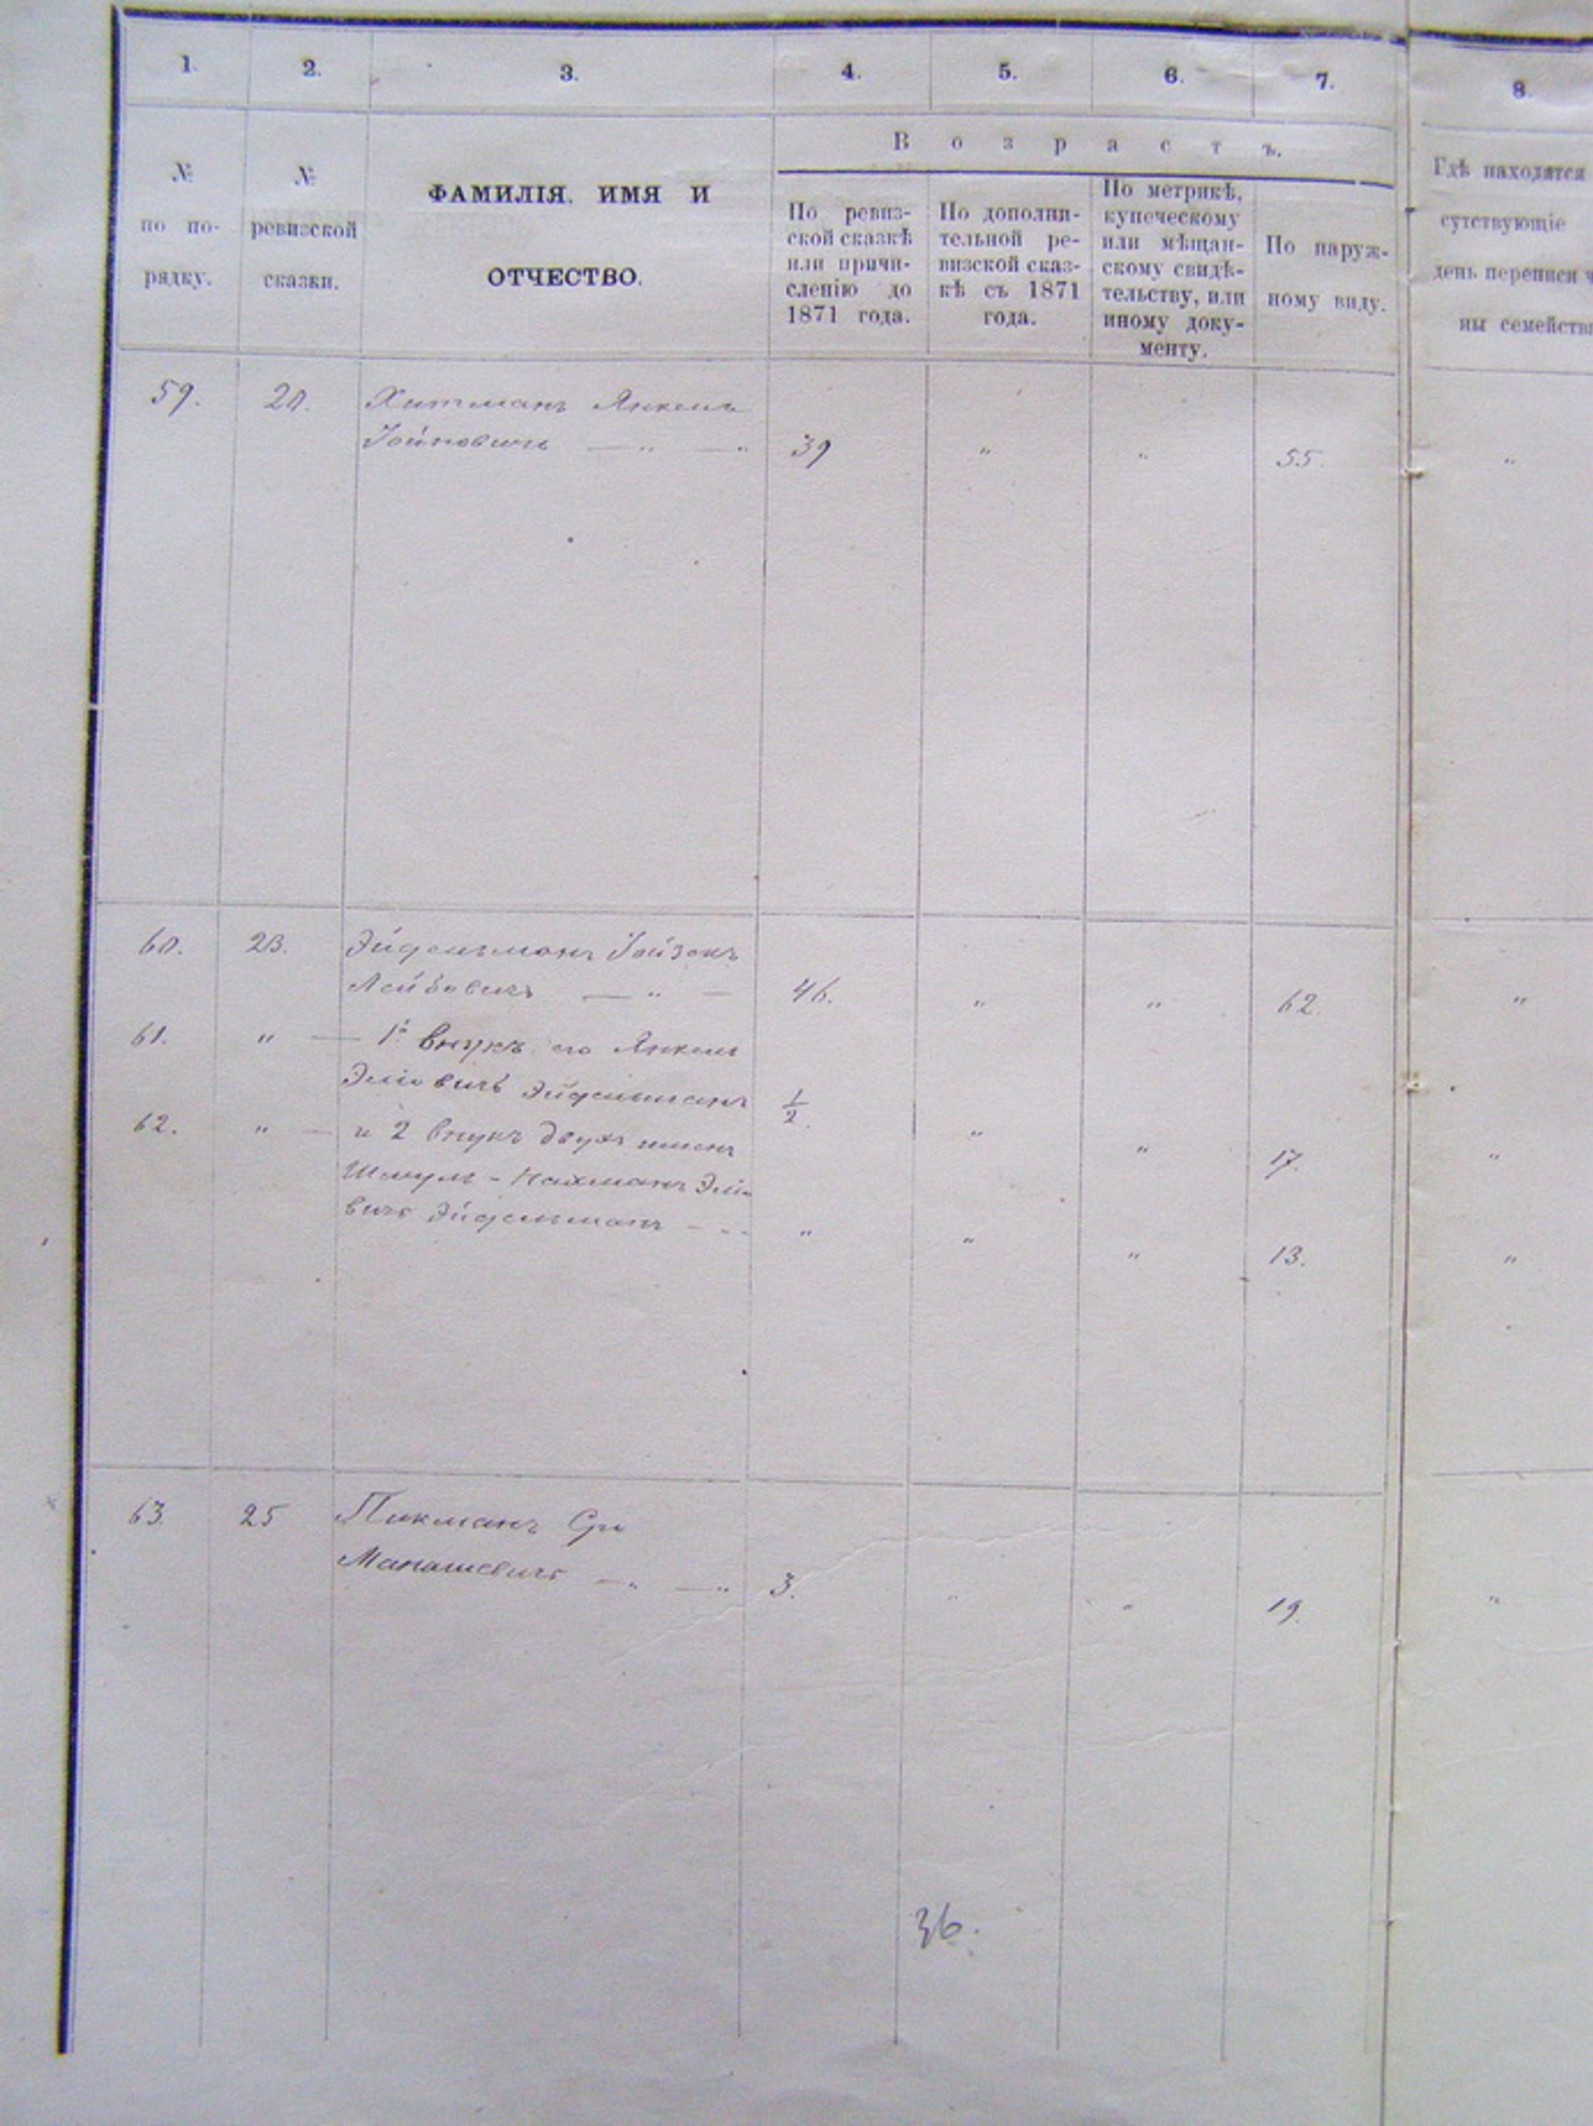 1. 2. 3. 4. 5. 6. 7. 8.
№ по по-рядку.
№ ревизской сказки.
ФАМИЛІЯ, ИМЯ И
ОТЧЕСТВО.
Возрастъ.
По ревиз-
ской сказкѣ
или причи-
сленію до
1871 года.
По дополни-
тельной ре-
визской сказ-
кѣ съ 1871
года.
По метрикѣ,
купеческому
или мѣщан-
скому свидѣ-
тельству, или
иному доку-
менту.
По наруж-
ному виду.
Гдѣ находятся
сутствующіе
день переписи ч
ны семейства
59. 20. Хитманъ Янкель
Іойновичъ — " — " 39 " " 55. "
60. 23. Эйдельманъ Іойзокъ
Лейбовичъ — " — 46. " " 62. "
61. " — 1й внукъ его Янкель
Эліовичъ Эйдельманъ 1/2. " " 17. "
62. " — и 2 внукъ двухъ именъ
Шмуль-Нахманъ Эліо
вичъ Эйдельманъ - - - " " " 13. "
63. 25 Пикманъ
Манашевичъ — " — " 3. " " 19. "
36.